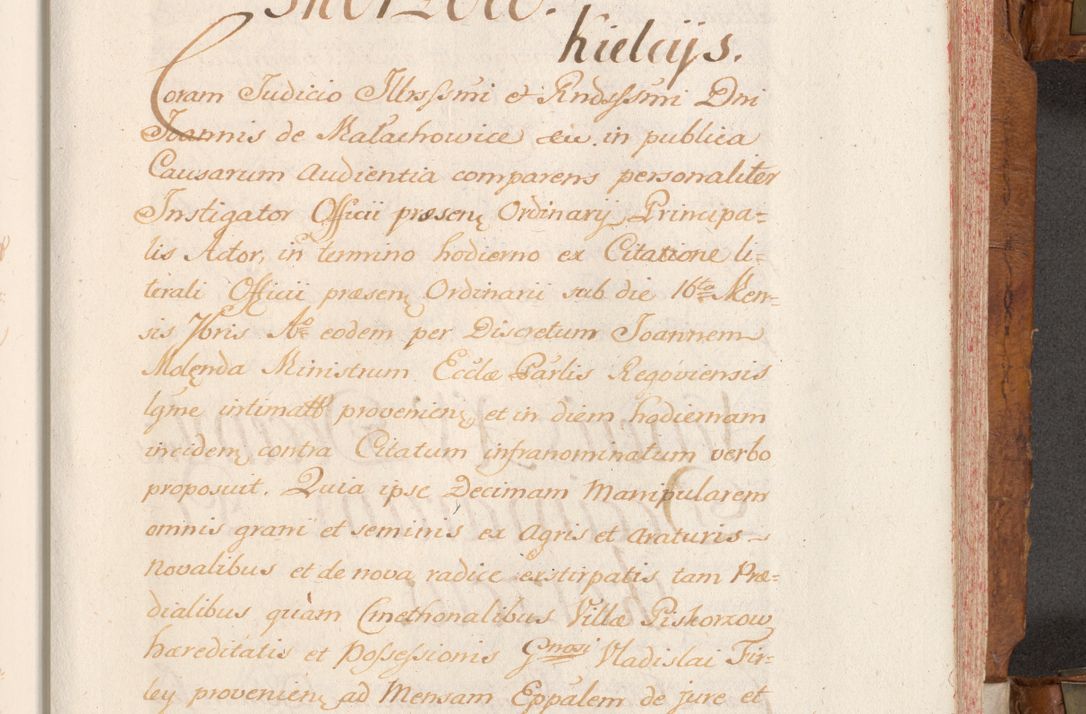 Kielcijs.
Coram Judicio Illrssmi et Rndsssmi Dni
Joannis de Małachowice etc. in publica
Causarum Audientia comparens personaliter
Instigator Officii præsenę Ordinarij Principa=
lis Actor, in termino hodierno ex Citatione li=
terali Officii præsenę Ordinarii sub die 16ta Men=
sis 7bris Ao eodem per Discretum Joannem
Molęnda Ministrum Ecclæ Parlis Regoviensis
lgme intimatt provenienę et in diem hodiernam
incidenę contra Citatum infranominatum verbo
proposuit. Quia ipse Decimam Manipularem
omnis grani et seminis ex Agris et Araturis
Novalibus et de nova radice exstirpatis tam Præ=
dialibus quàm Cmethonalibus Villæ Piskorzow
hæreditatis et Possessionis Gnosi Vladislai Fir=
ley provenienę ad Mensam Eppalem de jure et